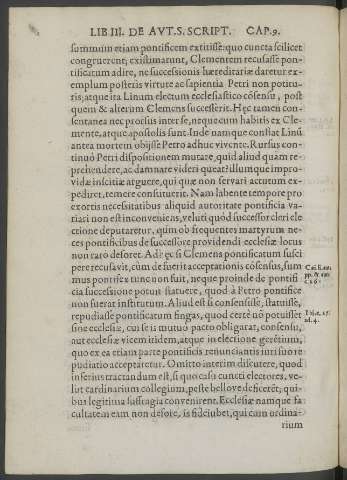 LIB III. DE AVT. S. SCRIPT. CAP. 9.
summum etiam pontificem extitisse: quo cuncta scilicet
congruerent, existimarunt, Clementem recusasse pon-
tificatum adire, ne successionis hæreditariæ daretur ex-
emplum posteris virtute ac sapientia Petri non potitu-
ris; atque ita Linum electum ecclesiastico cōsensu, post
quem & alterum Clemens successerit. Hęc tamen con-
sentanea nec prorsus inter se, neque cum habitis ex Cle-
mente, atque apostolis sunt. Inde namque constat Linū
antea mortem obijsse Petro adhuc vivente. Rursus con-
tinuò Petri dispositionem mutare, quid aliud quam re-
prehendere, ac damnare videri queat? illumque impro-
vidæ inscitiæ arguere, qui quæ non servari accutum ex-
pediret, temere constituerit. Nam labente tempore pro
exortis necessitatibus aliquid autoritate pontificia va-
riari non est inconveniens, veluti quòd successor cleri ele
ctione deputaretur, quùm ob frequentes martyrum ne-
ces pontificibus de successore providendi ecclesiæ locus
non raro deforet. Adęc si Clemens pontificatum susci
pere recusavit, cùm de fuerit acceptationis cōsensus, sum
mus pontifex tunc non fuit, neque proinde de pontifi
cia successione potuit statuere, quod à Petro pontifice
non fuerat institutum. Aliud est si consensisse, statuisse,
repudiasse pontificatum fingas, quod certè nō potuisset
sine ecclesiæ, cui se is mutuo pacto obligarat, consensu,
aut ecclesiæ vicem itidem, atque in electione gerētium,
quo ex ea etiam parte pontificis renunciantis iuri suo re-
pudiatio acceptaretur. Omitto interim discutere, quod
inferius tractandum est, si quo casu cuncti electores, ve-
lut cardinarium collegium, peste bellove deficerēt, qui-
bus legitima suffragia convenirent. Ecclesiæ namque fa
cultatem eam non defore, is fidciubet, qui eam ordina-
rium